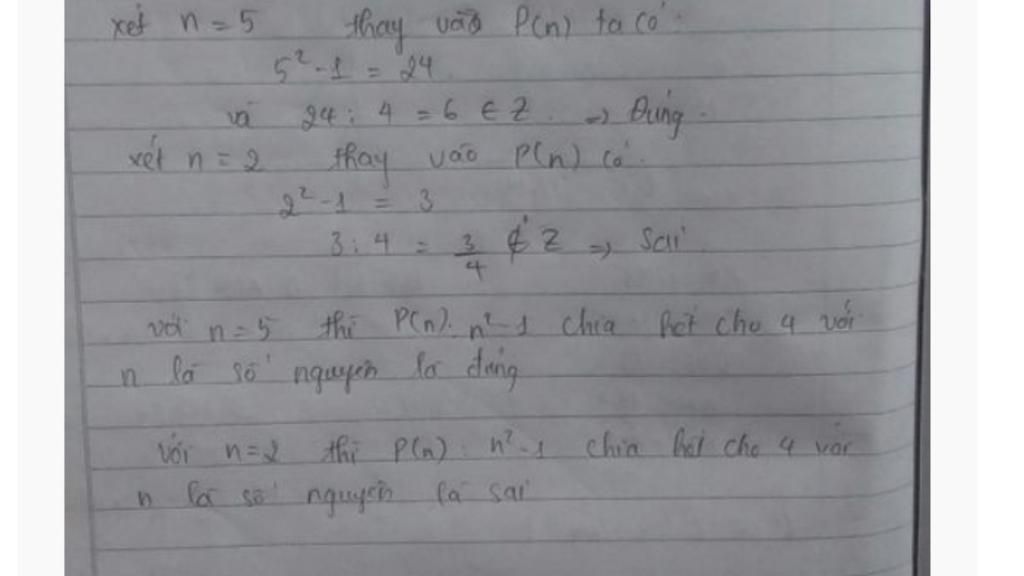 xét n = 5 thay vào P(n) ta có
5² - 1 = 24
và 24 : 4 = 6 ∈ Z. => Đúng.
xét n = 2 thay vào P(n) có.
2² - 1 = 3
3 : 4 = 3/4 ∉ Z => Sai
với n = 5 thì P(n): n² - 1 chia hết cho 4 với
n là số nguyên là đúng
với n = 2 thì P(n): n² - 1 chia hết cho 4 với
n là số nguyên là sai